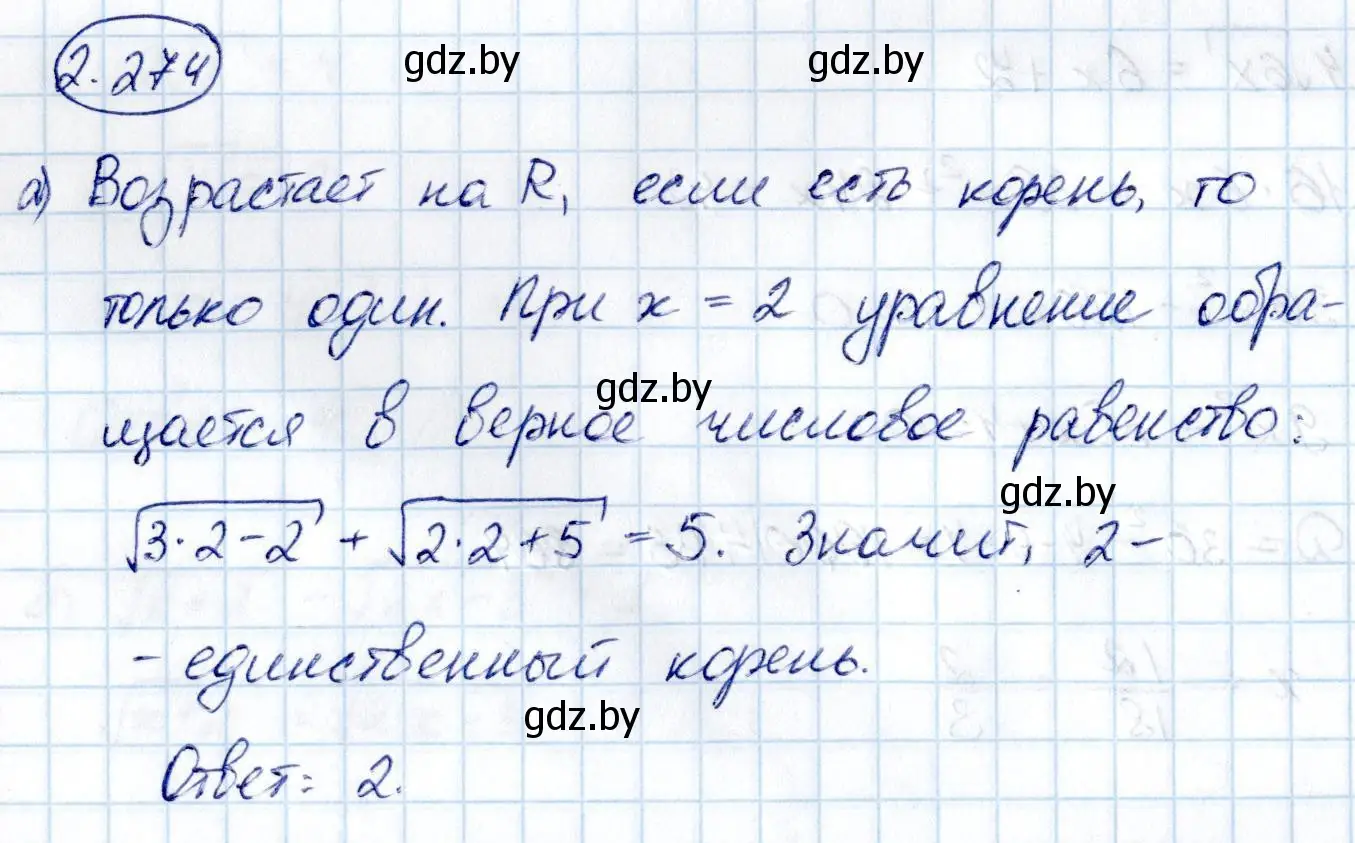 2.274
gdz.by
gdz.by
а) Возрастает на R, если есть корень, то
только один. При x = 2 уравнение обра-
gdz.by
щается в верное числовое равенство:
gdz.by
√(3·2-2) + √(2·2+5) = 5. Значит, 2 -
- единственный корень.
gdz.by
Ответ: 2.